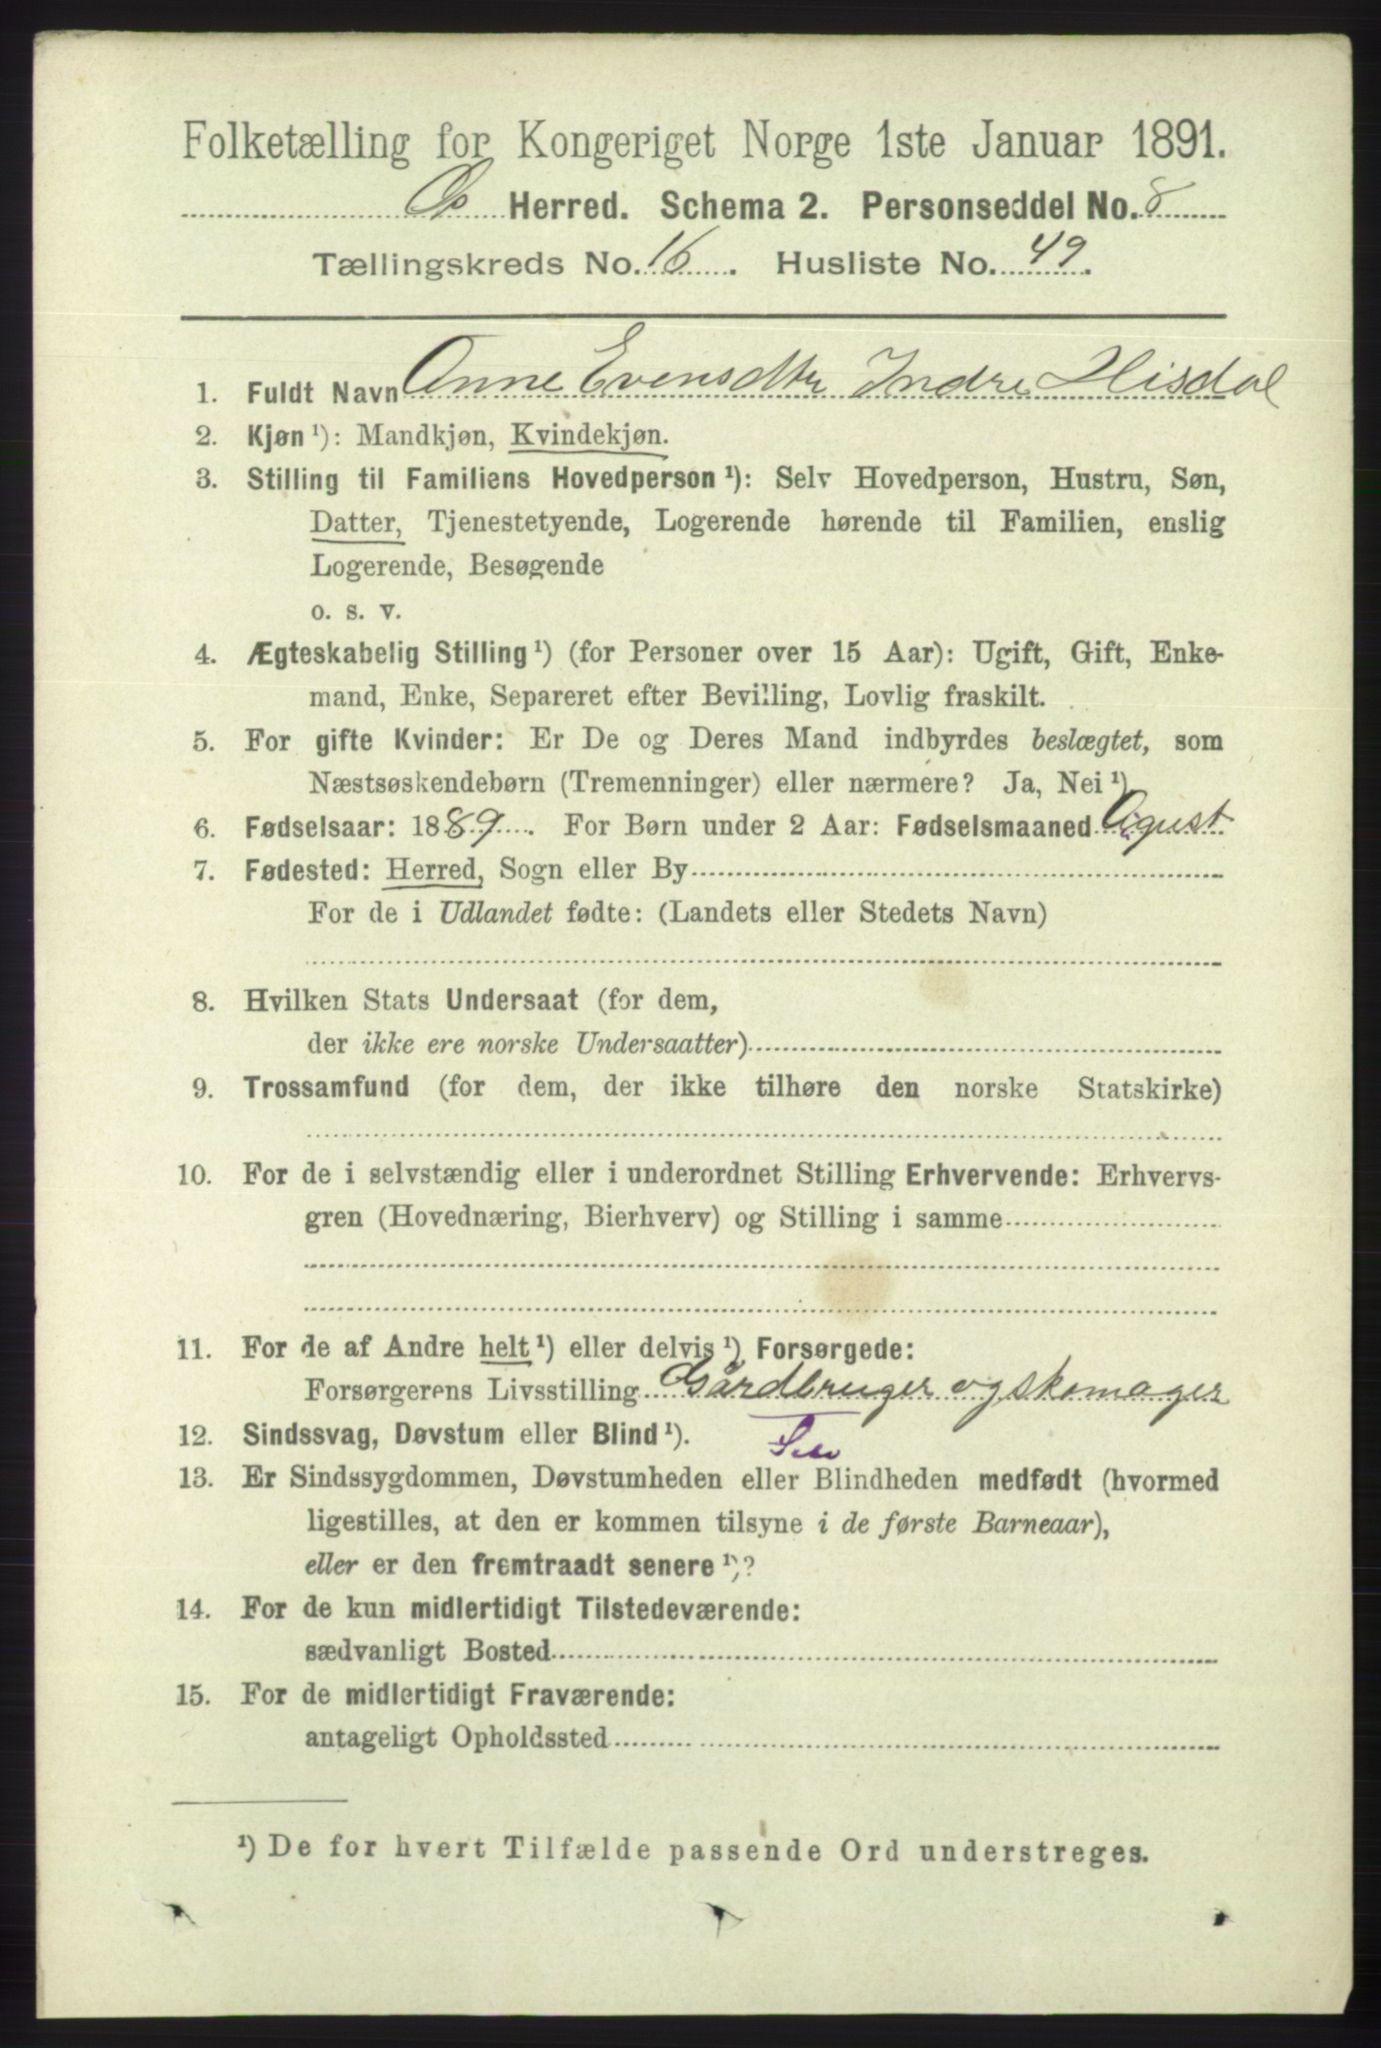 Folketælling for Kongeriget Norge 1ste Januar 1891.
Os Herred. Schema 2. Personseddel No. 8
Tællingskreds No. 16. Husliste No. 49.
1. Fuldt Navn Anne Evensdtr Indre Hisdal
2. Kjøn ¹): Mandkjøn, Kvindekjøn.
3. Stilling til Familiens Hovedperson ¹): Selv Hovedperson, Hustru, Søn,
Datter, Tjenestetyende, Logerende hørende til Familien, enslig
Logerende, Besøgende
o. s. v.
4. Ægteskabelig Stilling ¹) (for Personer over 15 Aar): Ugift, Gift, Enke-
mand, Enke, Separeret efter Bevilling, Lovlig fraskilt.
5. For gifte Kvinder: Er De og Deres Mand indbyrdes beslægtet, som
Næstsøskendebørn (Tremenninger) eller nærmere? Ja, Nei ¹)
6. Fødselsaar: 1889. For Børn under 2 Aar: Fødselsmaaned Agust
7. Fødested: Herred, Sogn eller By
For de i Udlandet fødte: (Landets eller Stedets Navn)
8. Hvilken Stats Undersaat (for dem,
der ikke ere norske Undersaatter)
9. Trossamfund (for dem, der ikke tilhøre den norske Statskirke)
10. For de i selvstændig eller i underordnet Stilling Erhvervende: Erhvervs-
gren (Hovednæring, Bierhverv) og Stilling i samme
11. For de af Andre helt ¹) eller delvis ¹) Forsørgede:
Forsørgerens Livsstilling Gårdbruger og skomager
12. Sindssvag, Døvstum eller Blind ¹).
13. Er Sindssygdommen, Døvstumheden eller Blindheden medfødt (hvormed
ligestilles, at den er kommen tilsyne i de første Barneaar),
eller er den fremtraadt senere ¹)?
14. For de kun midlertidigt Tilstedeværende:
sædvanligt Bosted
15. For de midlertidigt Fraværende:
antageligt Opholdssted
¹) De for hvert Tilfælde passende Ord understreges.